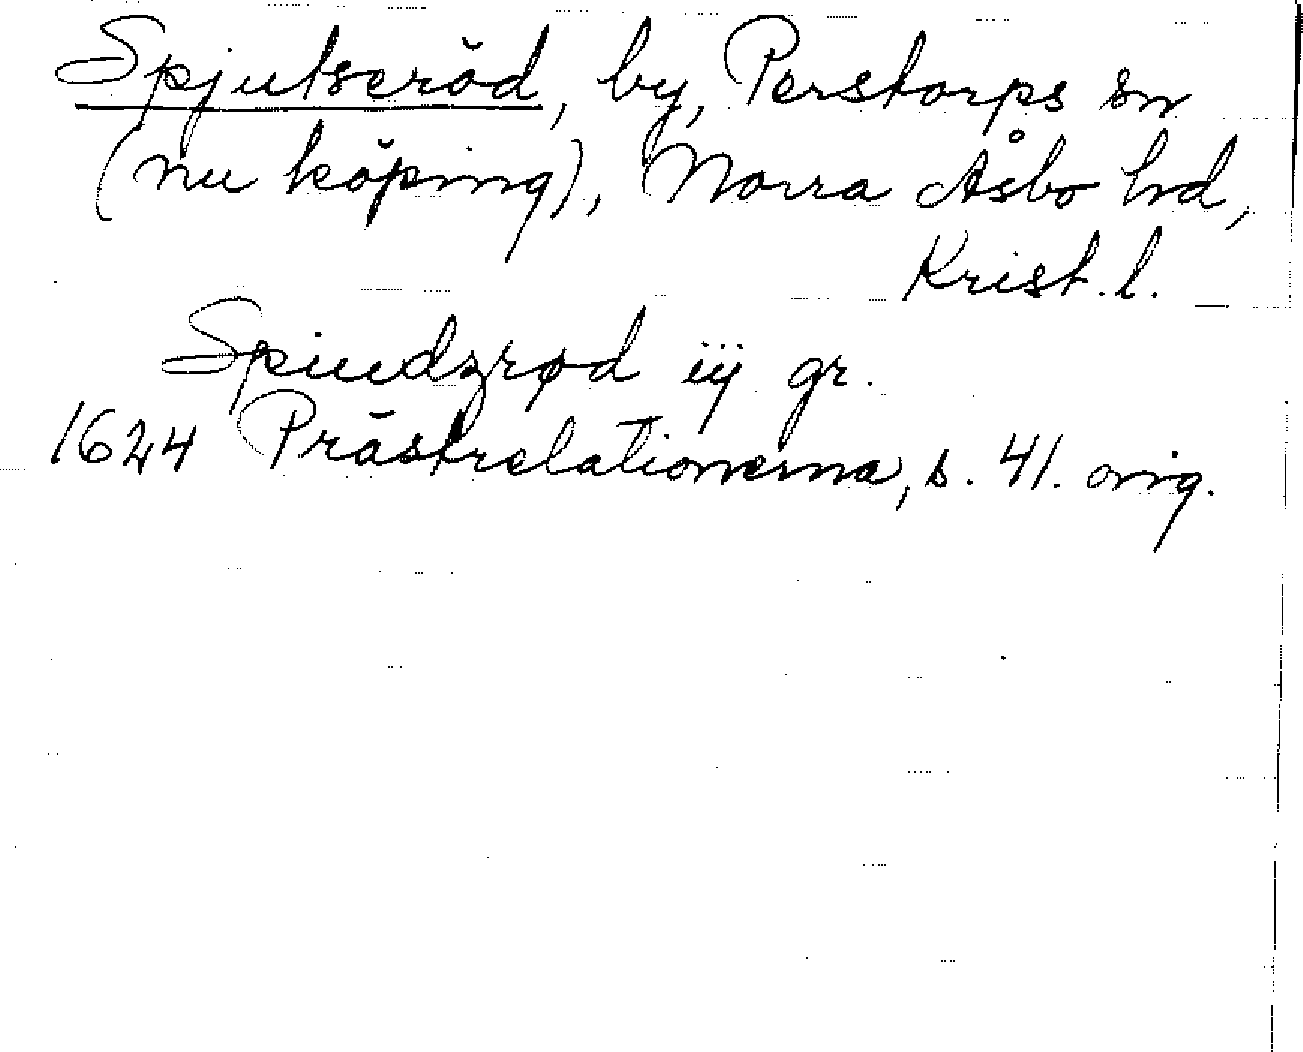 Spjutseröd, by, Perstorps sn
(nu köping), Norra Åsbo hd,
Krist. l.
Spiudzrød iij gr.
1624 Prästrelationerna, s. 41. orig.